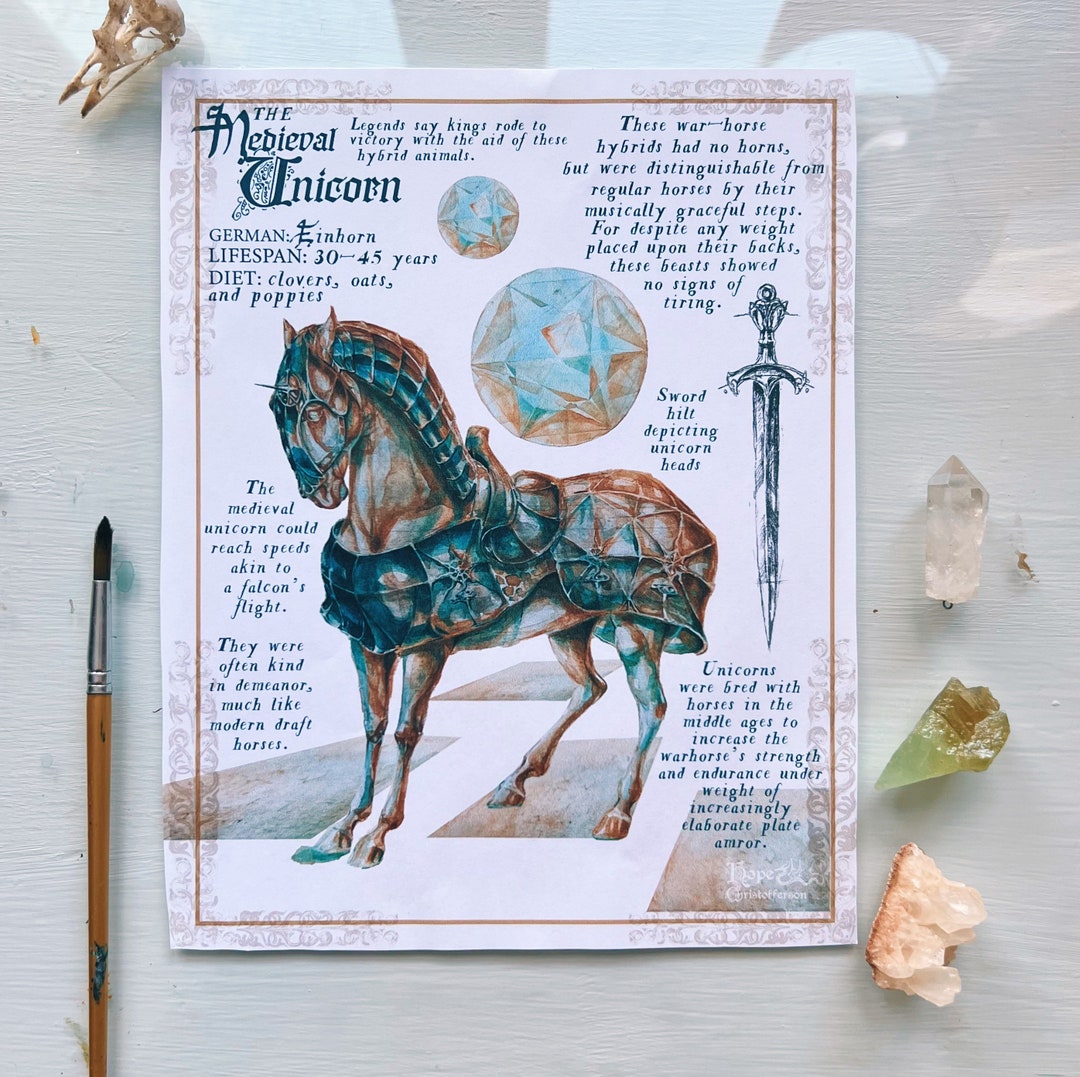 THE
Medieval
Unicorn
Legends say kings rode to
victory with the aid of these
hybrid animals.
GERMAN: Einhorn
LIFESPAN: 30-45 years
DIET: clovers, oats,
and poppies
These war-horse
hybrids had no horns,
but were distinguishable from
regular horses by their
musically graceful steps.
For despite any weight
placed upon their backs,
these beasts showed
no signs of
tiring.
Sword
hilt
depicting
unicorn
heads
The
medieval
unicorn could
reach speeds
akin to
a falcon's
flight.
They were
often kind
in demeanor,
much like
modern draft
horses.
Unicorns
were bred with
horses in the
middle ages to
increase the
warhorse's strength
and endurance under
weight of
increasingly
elaborate plate
amror.
Hope
Christofferson